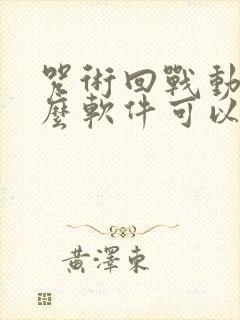 咒術回戰動
麼軟件可以
黃澤東